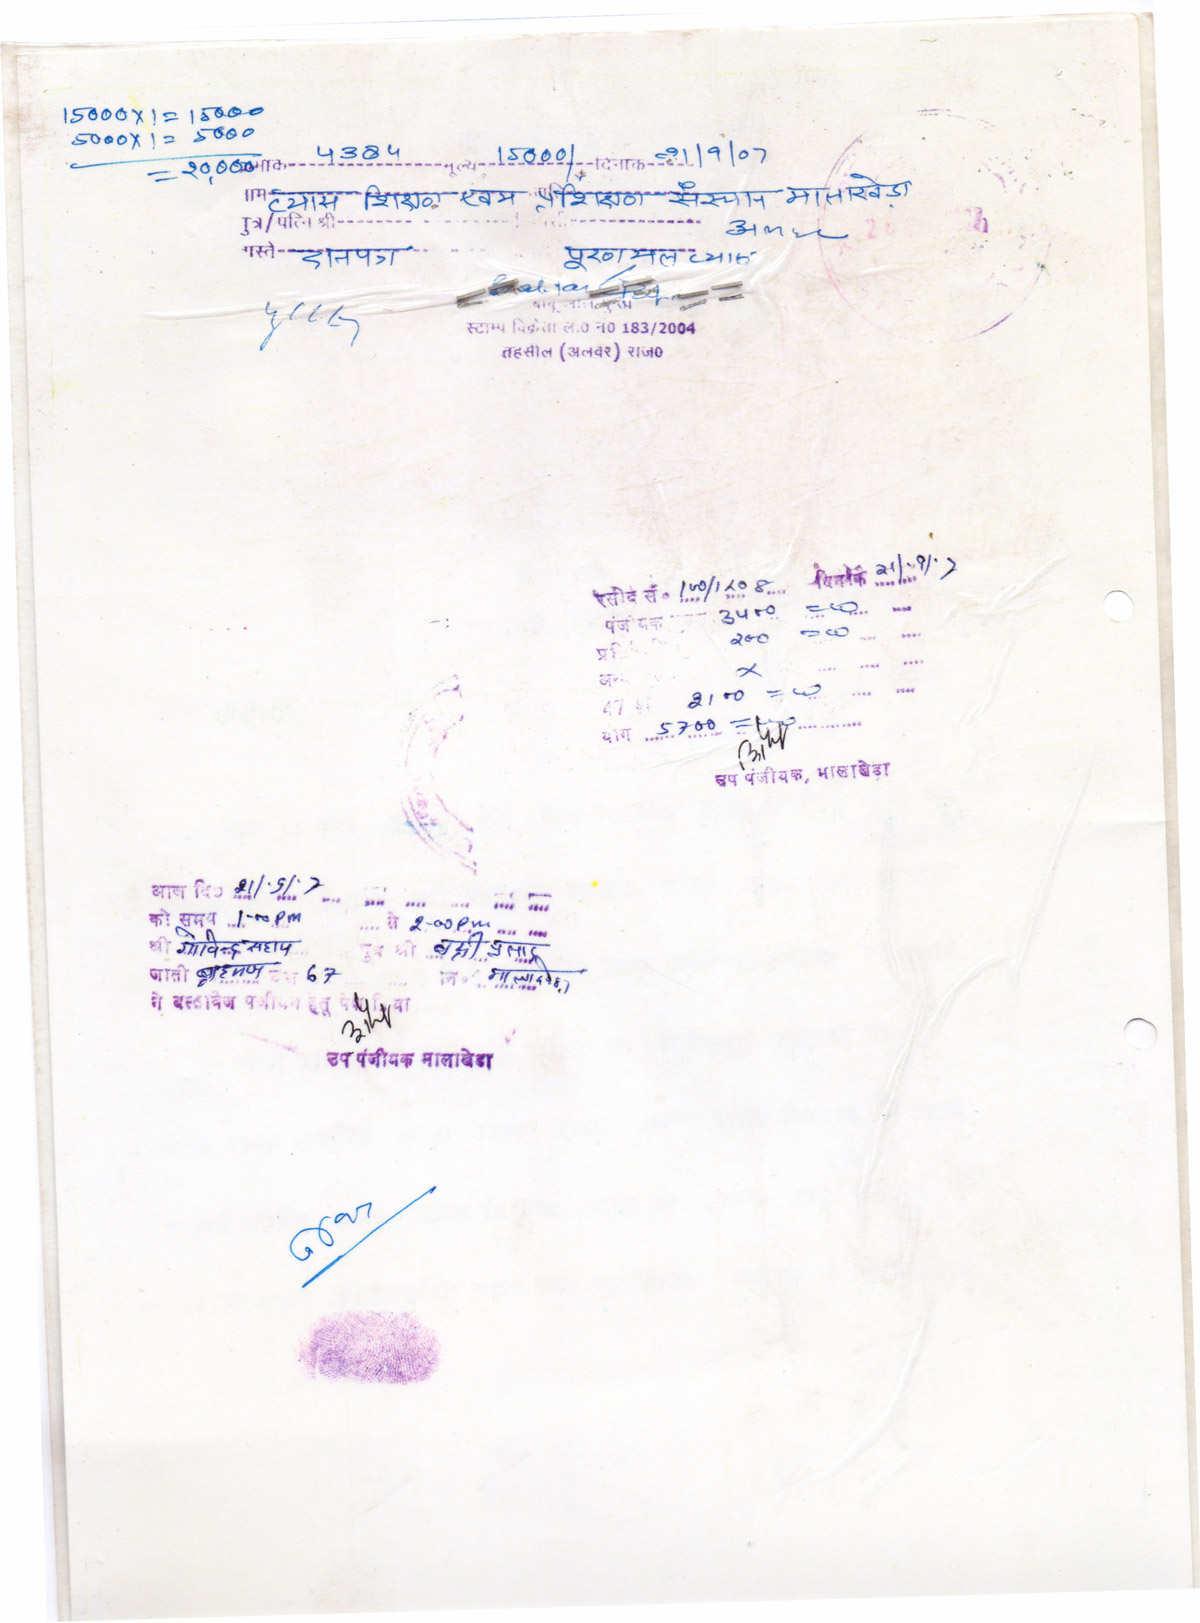 15000x1= 15000
5000x1= 5000
= 20,000
क्रमांक 4384 मूल्य 15000/ दिनांक 21/9/07
नाम व्यास शिक्षण एवम प्रशिक्षण संस्थान मालाखेड़ा
पुत्र/पत्नि श्री अलवर
वास्ते दानपत्र पूरणमल व्यास
स्टाम्प विक्रेता ल.0 न0 183/2004
तहसील (अलवर) राज0
रसीद सं० दिनांक 21/.9/.7
पंजीयक 3400 =00
200 =00
x
2100 =00
योग 5700 =00
उप पंजीयक, मालाखेडा
आज दि0 21/.9/.7
को समय 1-00 PM से 2-00 PM
श्री गोविन्द सहाय पुत्र श्री बद्री प्रसाद
जाती ब्राहमण 67 नि. मालाखेड़ा
ने दस्तावेज पंजीयन हेतू पेश किया
उप पंजीयक मालाखेडा